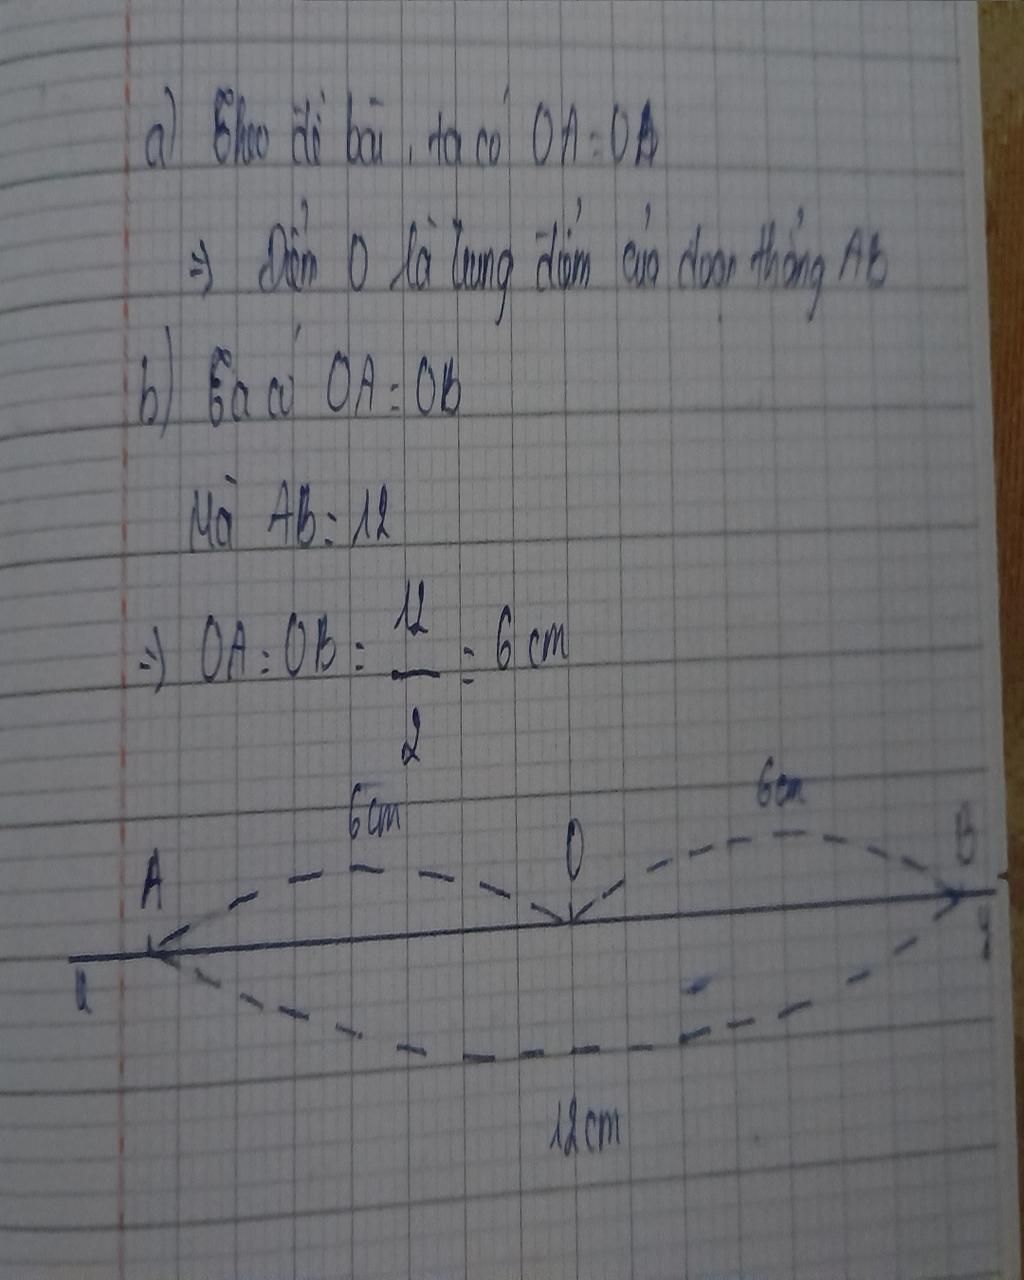 a) Theo đề bài, ta có OA = OB
=> Điểm O là trung điểm của đoạn thẳng AB
b) Ta có OA = OB
Mà AB = 12
=> OA = OB = 12/2 = 6 cm
6cm 6cm
A O B
y
12cm